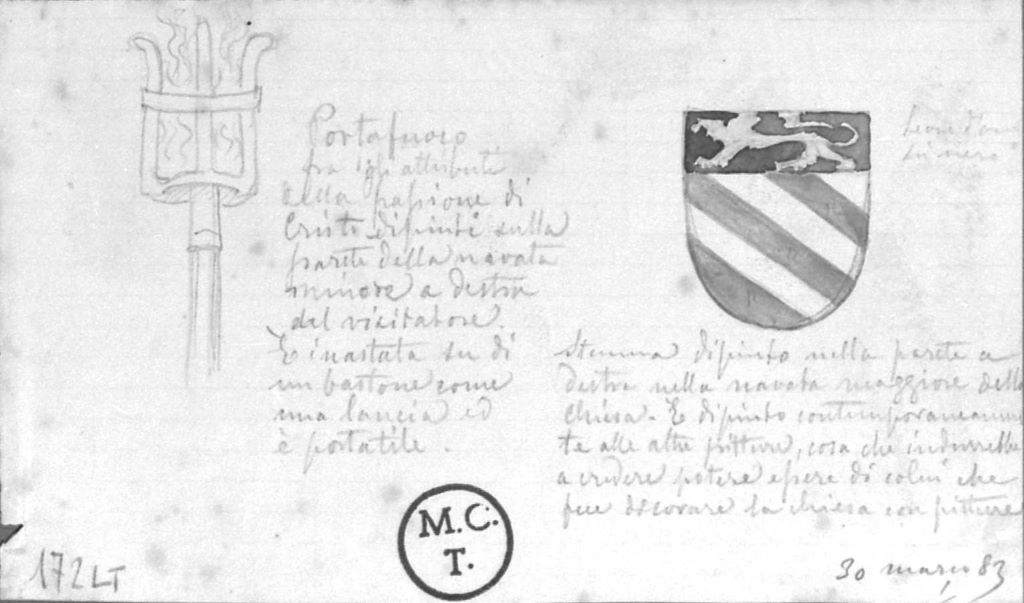 Portafuoco
fra gli attributi
della passione di
Cristo dipinti sulla
parete della navata
minore a destra
del visitatore.
È inastata su di
un bastone come
una lancia ed
è portatile.
Leone d'oro
in nero
Stemma dipinto nella parete a
destra nella navata maggiore della
chiesa. È dipinto contemporaneamen
te alle altre pitture, cosa che indurrebbe
a credere potere essere di colui che
fece decorare la chiesa con pitture
M.C.
T.
172 LT
30 março 83